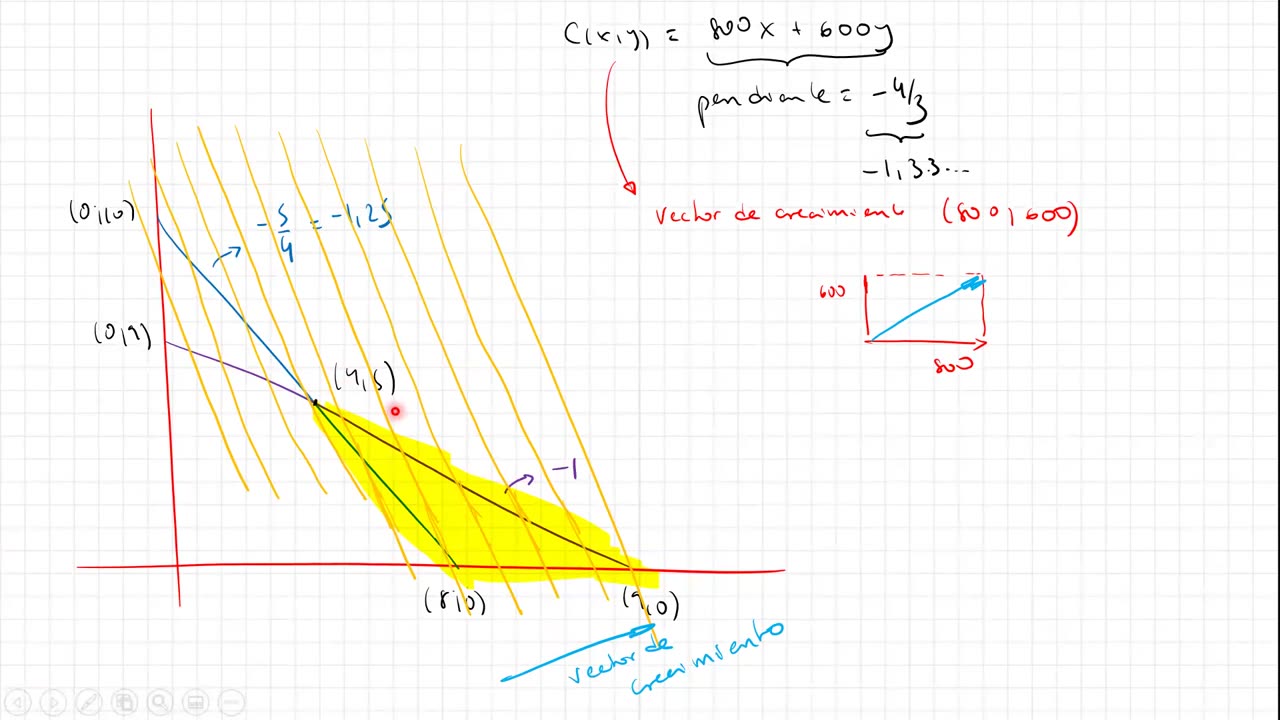 C(x,y) = 800x + 600y
pendiente = -4/3
-1,33...
vector de crecimiento (800,600)
(0,10)
-5/4 = -1,25
600
800
(0,9)
(4,5)
-1
(8,0)
(9,0)
vector de
crecimiento